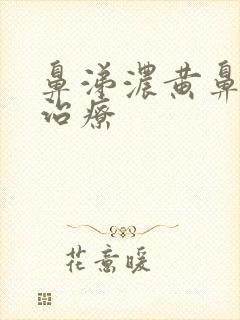 鼻涕濃黄鼻
治療
花意暖